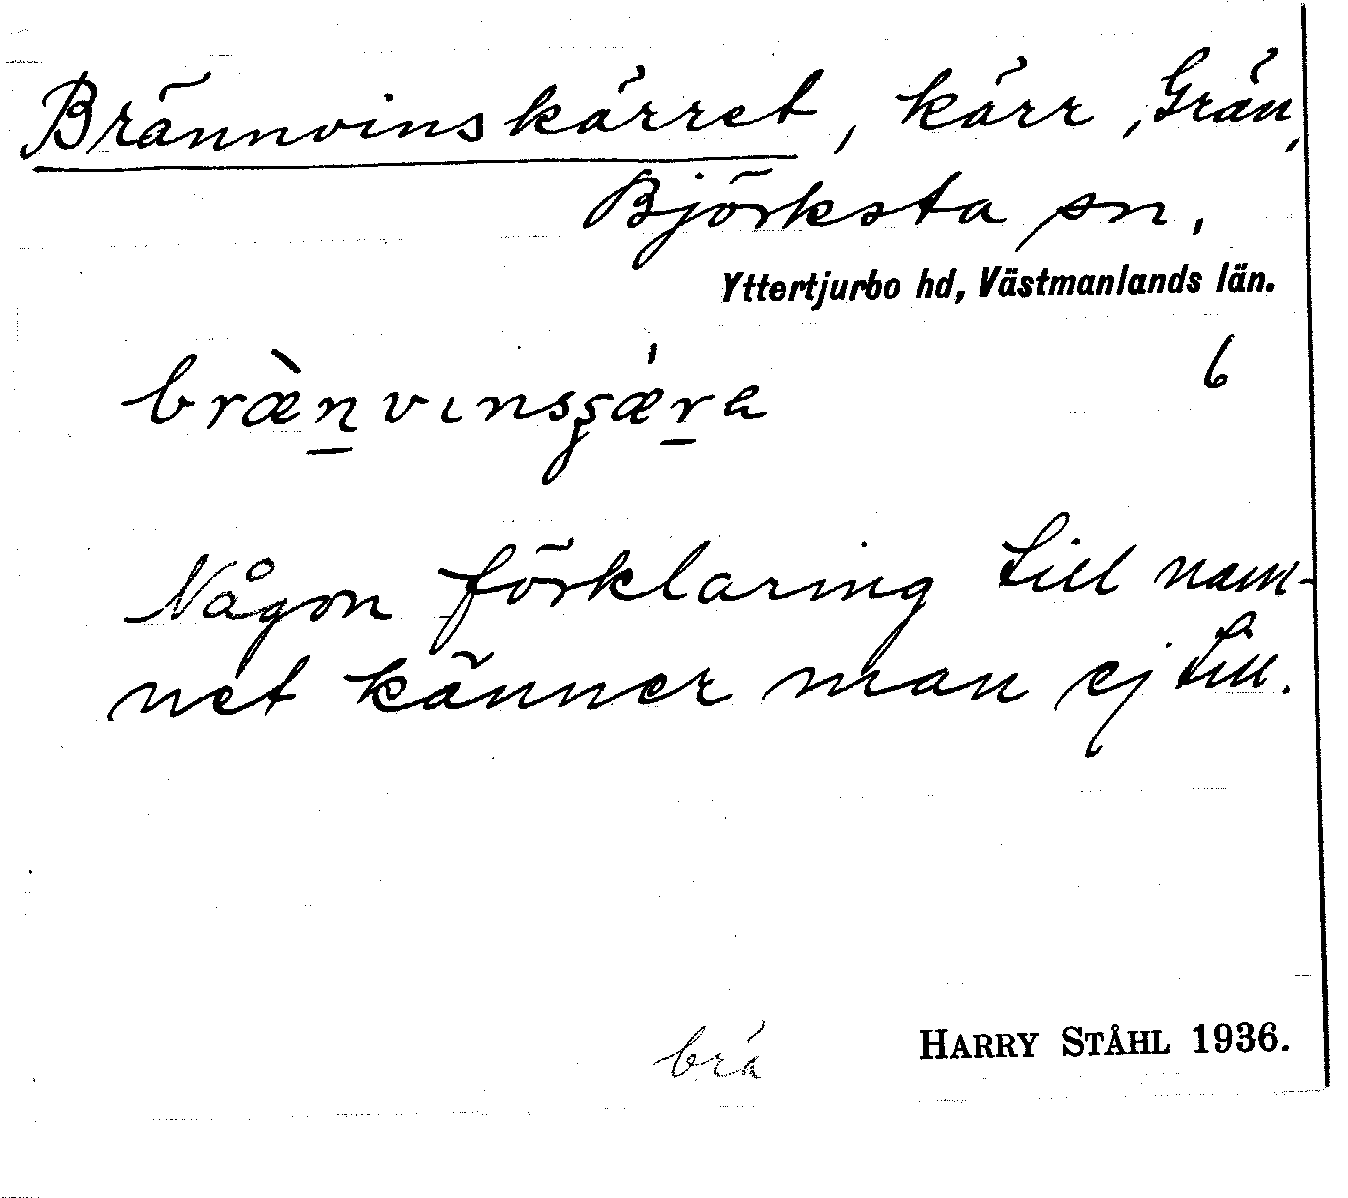 Brännvinskärret, kärr, Grän,
Björksta sn,
Yttertjurbo hd, Västmanlands län.
6
bræ̀n̠vınsʂæ̀r̠a
Någon förklaring till nam-
net känner man ej till.
brä
HARRY STÅHL 1936.